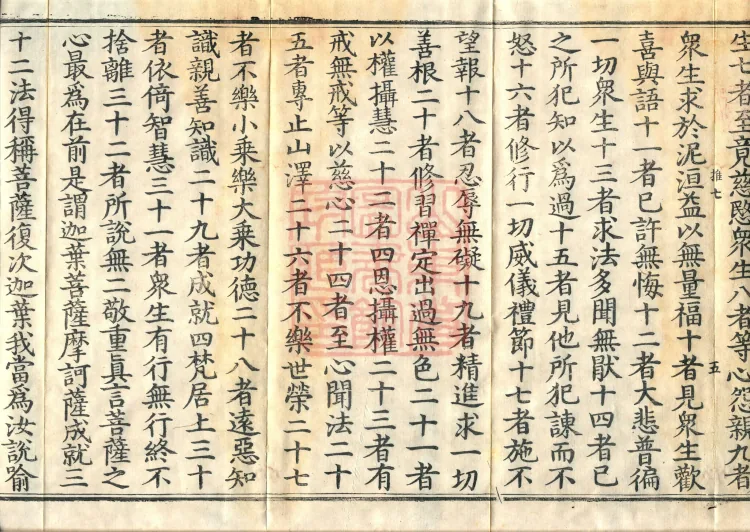 生七者至竟慈愍衆生八者等心怨親九者
推七 五
衆生求於泥洹益以無量福十者見衆生歡
喜與語十一者已許無悔十二者大悲普徧
一切衆生十三者求法多聞無猒十四者已
之所犯知以爲過十五者見他所犯諫而不
怒十六者修行一切威儀禮節十七者施不
望報十八者忍辱無礙十九者精進求一切
善根二十者修習禪定出過無色二十一者
以權攝慧二十二者四恩攝權二十三者有
戒無戒等以慈心二十四者至心聞法二十
五者專止山澤二十六者不樂世榮二十七
者不樂小乘樂大乘功德二十八者遠惡知
識親善知識二十九者成就四梵居上三十
者依倚智慧三十一者衆生有行無行終不
捨離三十二者所說無二敬重眞言菩薩之
心最爲在前是謂迦葉菩薩摩訶薩成就三
十二法得稱菩薩復次迦葉我當爲汝說喻